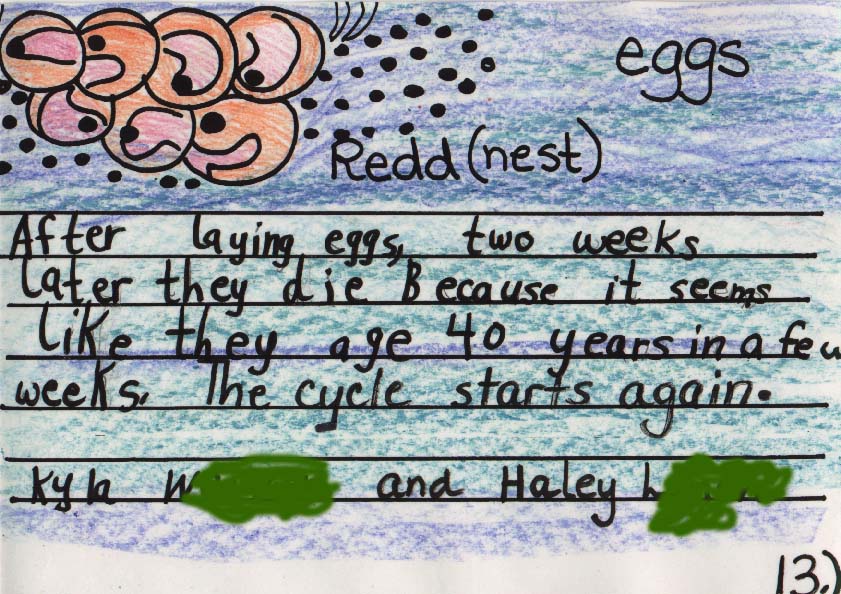 eggs
Redd (nest)
After laying eggs, two weeks
later they die Because it seems
like they age 40 years in a few
weeks. The cycle starts again.
Kyla and Haley
13.)